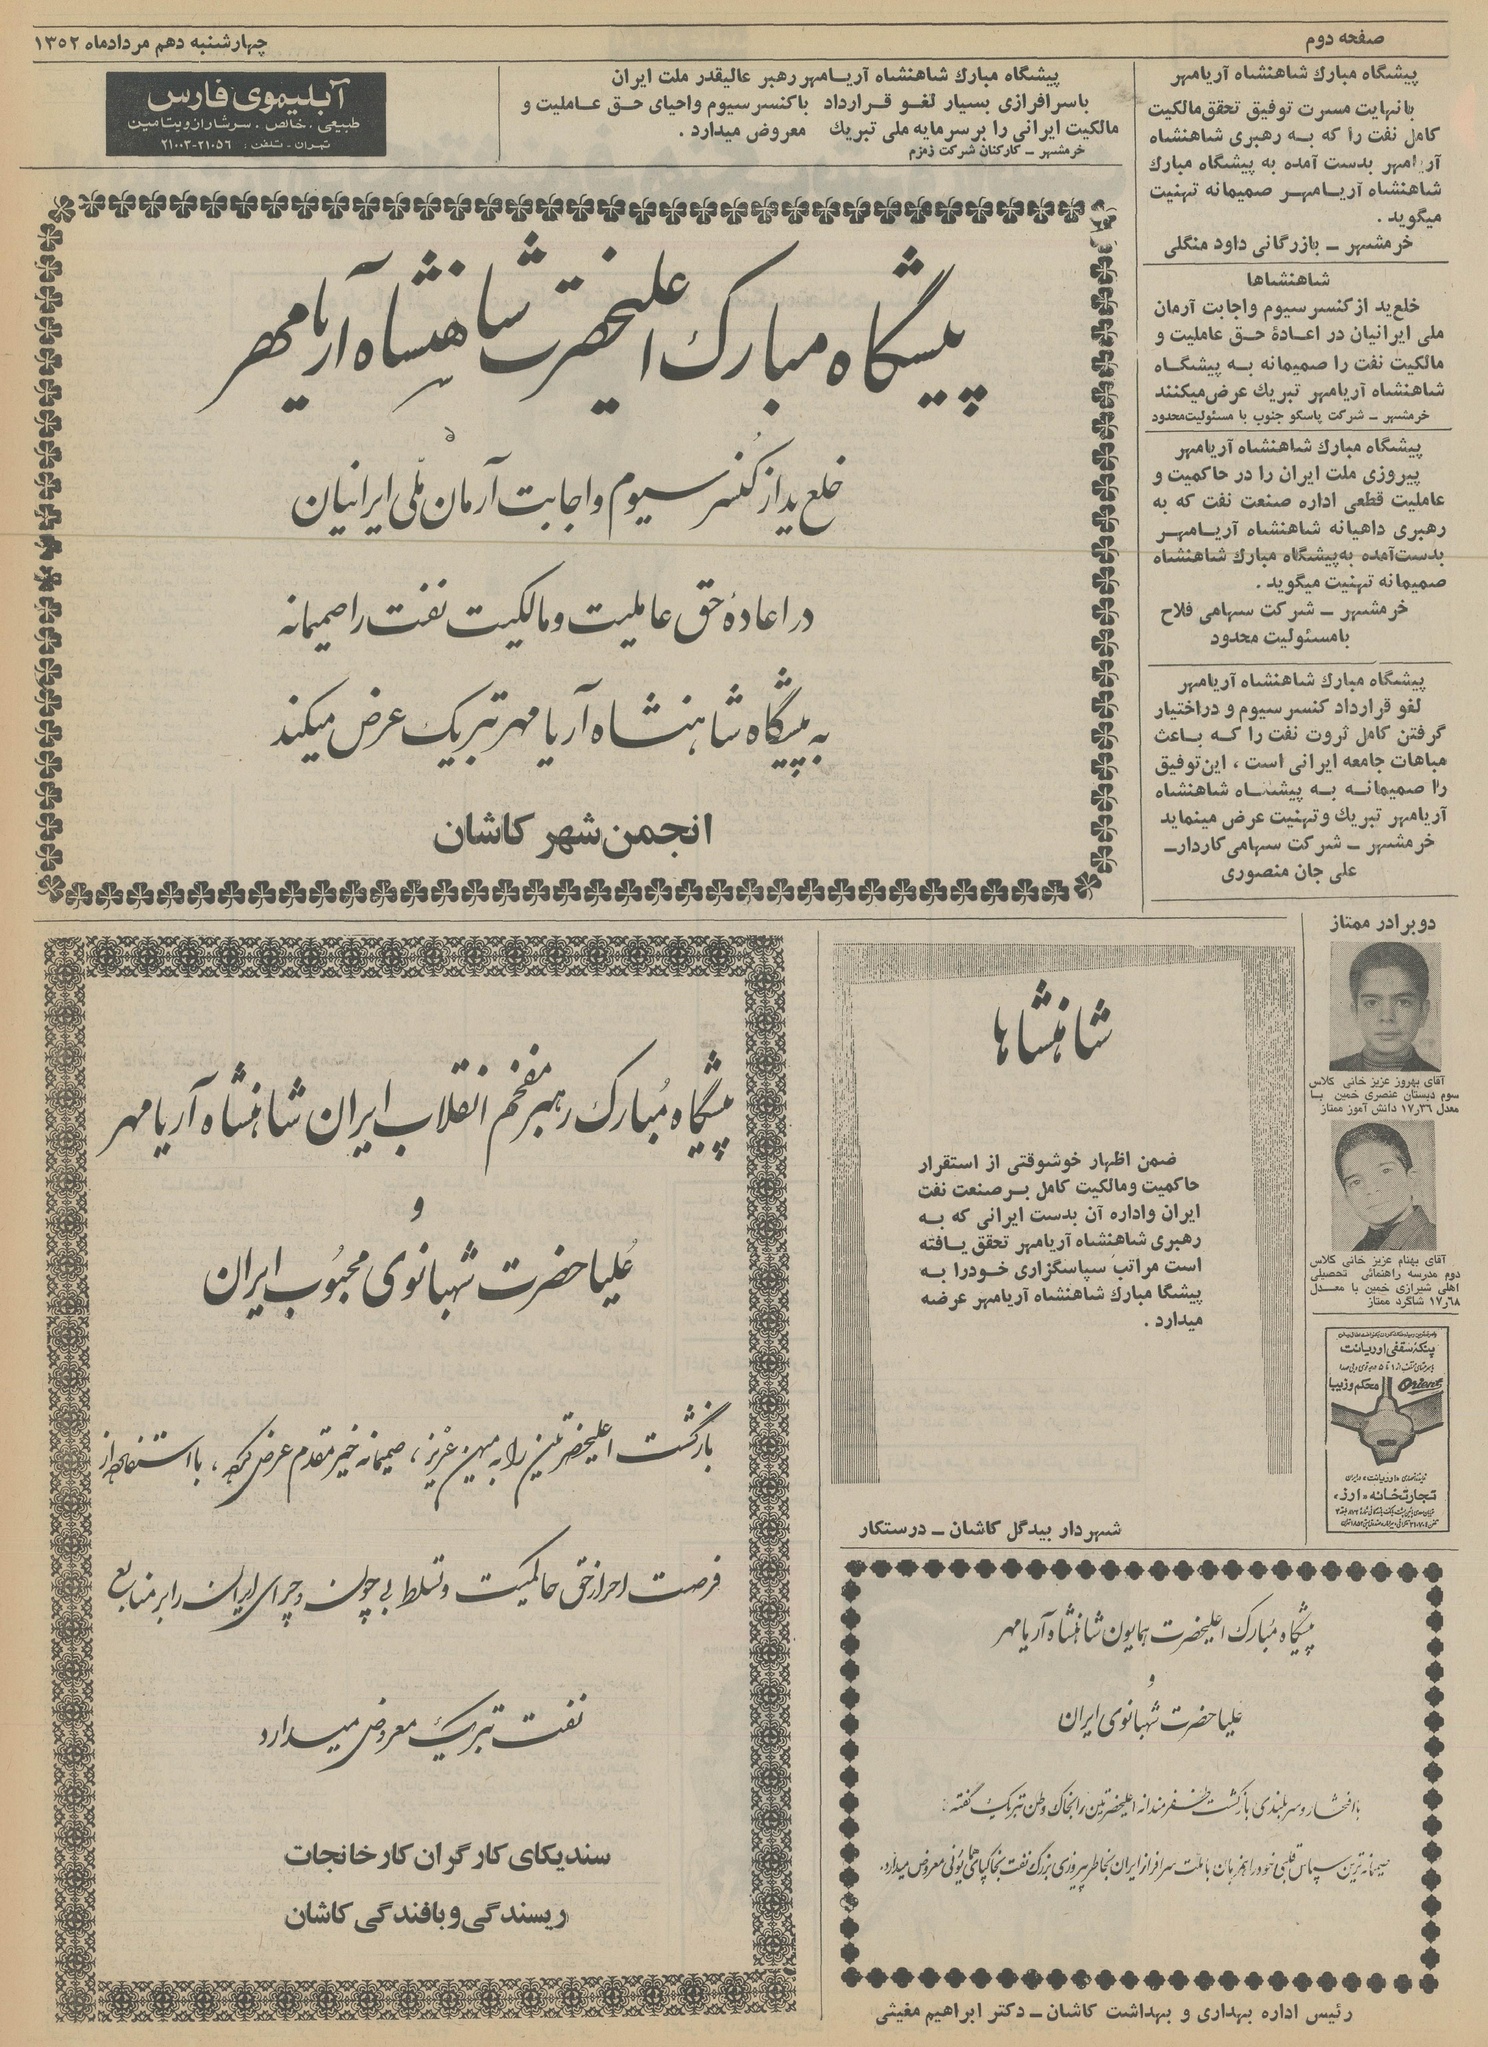 صفحه دوم
چهارشنبه دهم مردادماه ۱۳۵۲
پیشگاه مبارك شاهنشاه آریامهر
بانهایت مسرت توفیق تحقق مالکیت
کامل نفت را که به رهبری شاهنشاه
آریامهر بدست آمده به پیشگاه مبارك
شاهنشاه آریامهر صمیمانه تهنیت
میگوید .
خرمشهر ــ بازرگانی داود منگلی
شاهنشاها
خلع‌ید از کنسرسیوم واجابت آرمان
ملی ایرانیان در اعادۀ حق عاملیت و
مالکیت نفت را صمیمانه به پیشگاه
شاهنشاه آریامهر تبریك عرض‌میکنند
خرمشهر ــ شرکت پاسکو جنوب با مسئولیت‌محدود
پیشگاه مبارك شاهنشاه آریامهر
پیروزی ملت ایران را در حاکمیت و
عاملیت قطعی اداره صنعت نفت که به
رهبری داهیانه شاهنشاه آریامهر
بدست‌آمده به‌پیشگاه مبارك شاهنشاه
صمیمانه تهنیت میگوید .
خرمشهر ــ شرکت سهامی فلاح
بامسئولیت محدود
پیشگاه مبارك شاهنشاه آریامهر
لغو قرارداد کنسرسیوم و دراختیار
گرفتن کامل ثروت نفت را که باعث
مباهات جامعه ایرانی است ، این‌توفیق
را صمیمانه به پیشگاه شاهنشاه
آریامهر تبریك وتهنیت عرض مینماید
خرمشهر ــ شرکت سهامی کاردارــ
علی جان منصوری
پیشگاه مبارك شاهنشاه آریامهر رهبر عالیقدر ملت ایران
باسرافرازی بسیار لغو قرارداد باکنسرسیوم واحیای حق عاملیت و
مالکیت ایرانی را برسرمایه ملی تبریك معروض میدارد .
خرمشهر ــ کارکنان شرکت زمزم
آبلیموی فارس
طبیعی . خالص . سرشار از ویتامین
تهران - تلفن : ۲۱۰۵۶-۲۱۰۰۳
پیشگاه مبارک اعلیحضرت شاهنشاه آریامهر
خلع ید از کنسرسیوم واجابت آرمان ملّی ایرانیان
در اعادۀ حق عاملیت و مالکیت نفت را صمیمانه
به پیشگاه شاهنشاه آریامهر تبریک عرض میکند
انجمن شهر کاشان
دو برادر ممتاز
آقای بهروز عزیز خانی کلاس
سوم دبستان عنصری خمین با
معدل ۱۷ر۳۶ دانش آموز ممتاز
آقای بهنام عزیز خانی کلاس
دوم مدرسه راهنمائی تحصیلی
اهلی شیرازی خمین با معدل
۱۷ر۶۸ شاگرد ممتاز
پنکه سقفی اوریانت
محکم و زیبا
Orient
تجارتخانه «ارژ»
شاهنشاها
ضمن اظهار خوشوقتی از استقرار
حاکمیت ومالکیت کامل برصنعت نفت
ایران واداره آن بدست ایرانی که به
رهبری شاهنشاه آریامهر تحقق یافته
است مراتب سپاسگزاری خودرا به
پیشگا مبارك شاهنشاه آریامهر عرضه
میدارد .
شهردار بیدگل کاشان ــ درستکار
پیشگاه مُبارک رهبر مفخم انقلاب ایران شاهنشاه آریامهر
و
عُلیاحضرت شهبانوی محبُوب ایران
بازگشت اعلیحضرتین را به میهن عزیز ، صمیمانه خیرمقدم عرض کرده ، با استفاده از
فرصت احراز حق حاکمیت و تسلط بی چون و چرای ایران را بر منابع
نفت تبریک معروض میدارد
سندیکای کارگران کارخانجات
ریسندگی وبافندگی کاشان
پیشگاه مُبارک اعلیحضرت همایون شاهنشاه آریامهر
و
عُلیاحضرت شهبانوی ایران
با افتخار و سربلندی بازگشت ظفرمندانه اعلیحضرتین را بخاک وطن تبریک گفته ،
صمیمانه ترین سپاس قلبی خود را همزبان با ملت سرافراز ایران بخاطر پیروزی بزرگ نفت بخاکپای همایونی معروض میدارد.
رئیس اداره بهداری و بهداشت کاشان ــ دکتر ابراهیم مغیثی